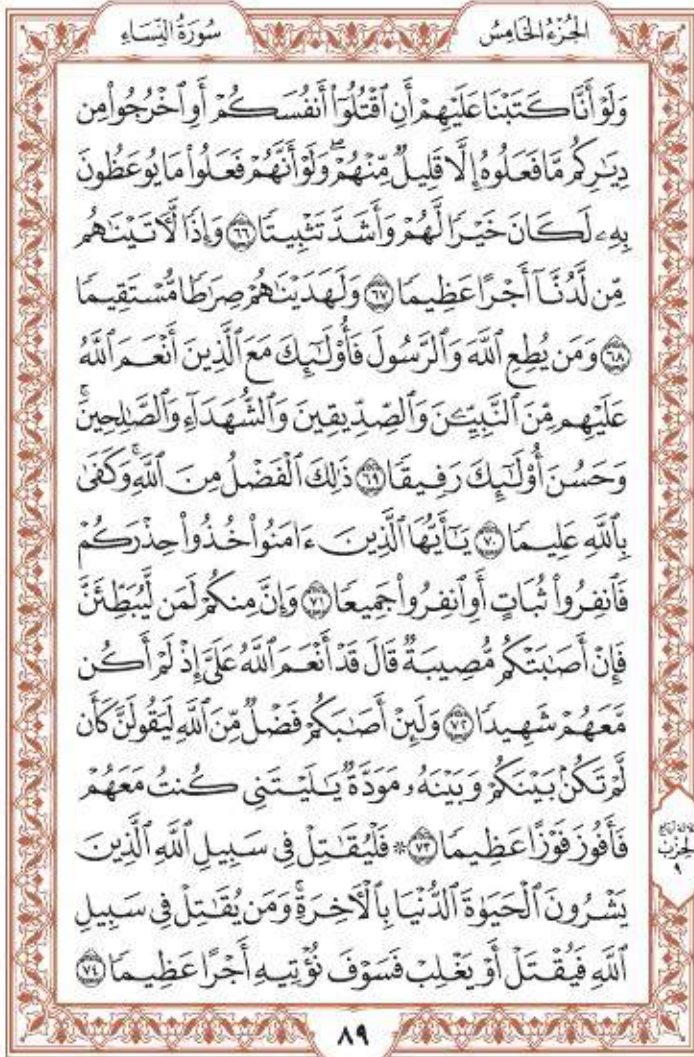 الجُزْءُ الخَامِسُ
سُورَةُ النِّسَاءِ
وَلَوْ أَنَّا كَتَبْنَا عَلَيْهِمْ أَنِ ٱقْتُلُوٓا۟ أَنفُسَكُمْ أَوِ ٱخْرُجُوا۟ مِن
دِيَٰرِكُم مَّا فَعَلُوهُ إِلَّا قَلِيلٌ مِّنْهُمْ ۖ وَلَوْ أَنَّهُمْ فَعَلُوا۟ مَا يُوعَظُونَ
بِهِۦ لَكَانَ خَيْرًا لَّهُمْ وَأَشَدَّ تَثْبِيتًا ٦٦ وَإِذًا لَّءَاتَيْنَٰهُم
مِّن لَّدُنَّآ أَجْرًا عَظِيمًا ٦٧ وَلَهَدَيْنَٰهُمْ صِرَٰطًا مُّسْتَقِيمًا
٦٨ وَمَن يُطِعِ ٱللَّهَ وَٱلرَّسُولَ فَأُو۟لَٰٓئِكَ مَعَ ٱلَّذِينَ أَنْعَمَ ٱللَّهُ
عَلَيْهِم مِّنَ ٱلنَّبِيِّـۧنَ وَٱلصِّدِّيقِينَ وَٱلشُّهَدَآءِ وَٱلصَّٰلِحِينَ ۚ
وَحَسُنَ أُو۟لَٰٓئِكَ رَفِيقًا ٦٩ ذَٰلِكَ ٱلْفَضْلُ مِنَ ٱللَّهِ ۚ وَكَفَىٰ
بِٱللَّهِ عَلِيمًا ٧٠ يَٰٓأَيُّهَا ٱلَّذِينَ ءَامَنُوا۟ خُذُوا۟ حِذْرَكُمْ
فَٱنفِرُوا۟ ثُبَاتٍ أَوِ ٱنفِرُوا۟ جَمِيعًا ٧١ وَإِنَّ مِنكُمْ لَمَن لَّيُبَطِّئَنَّ
فَإِنْ أَصَٰبَتْكُم مُّصِيبَةٌ قَالَ قَدْ أَنْعَمَ ٱللَّهُ عَلَىَّ إِذْ لَمْ أَكُن
مَّعَهُمْ شَهِيدًا ٧٢ وَلَئِنْ أَصَٰبَكُمْ فَضْلٌ مِّنَ ٱللَّهِ لَيَقُولَنَّ كَأَن
لَّمْ تَكُنۢ بَيْنَكُمْ وَبَيْنَهُۥ مَوَدَّةٌ يَٰلَيْتَنِى كُنتُ مَعَهُمْ
فَأَفُوزَ فَوْزًا عَظِيمًا ٧٣ ۞ فَلْيُقَٰتِلْ فِى سَبِيلِ ٱللَّهِ ٱلَّذِينَ
يَشْرُونَ ٱلْحَيَوٰةَ ٱلدُّنْيَا بِٱلْءَاخِرَةِ ۚ وَمَن يُقَٰتِلْ فِى سَبِيلِ
ٱللَّهِ فَيُقْتَلْ أَوْ يَغْلِبْ فَسَوْفَ نُؤْتِيهِ أَجْرًا عَظِيمًا ٧٤
الحِزْب
٩
٨٩